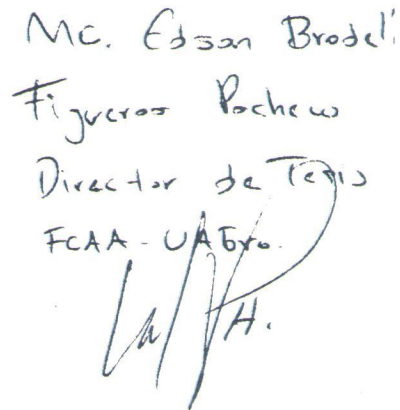 MC. Edson Brodeli
Figueroa Pacheco
Director de Tesis
FCAA - UAGro.
H.